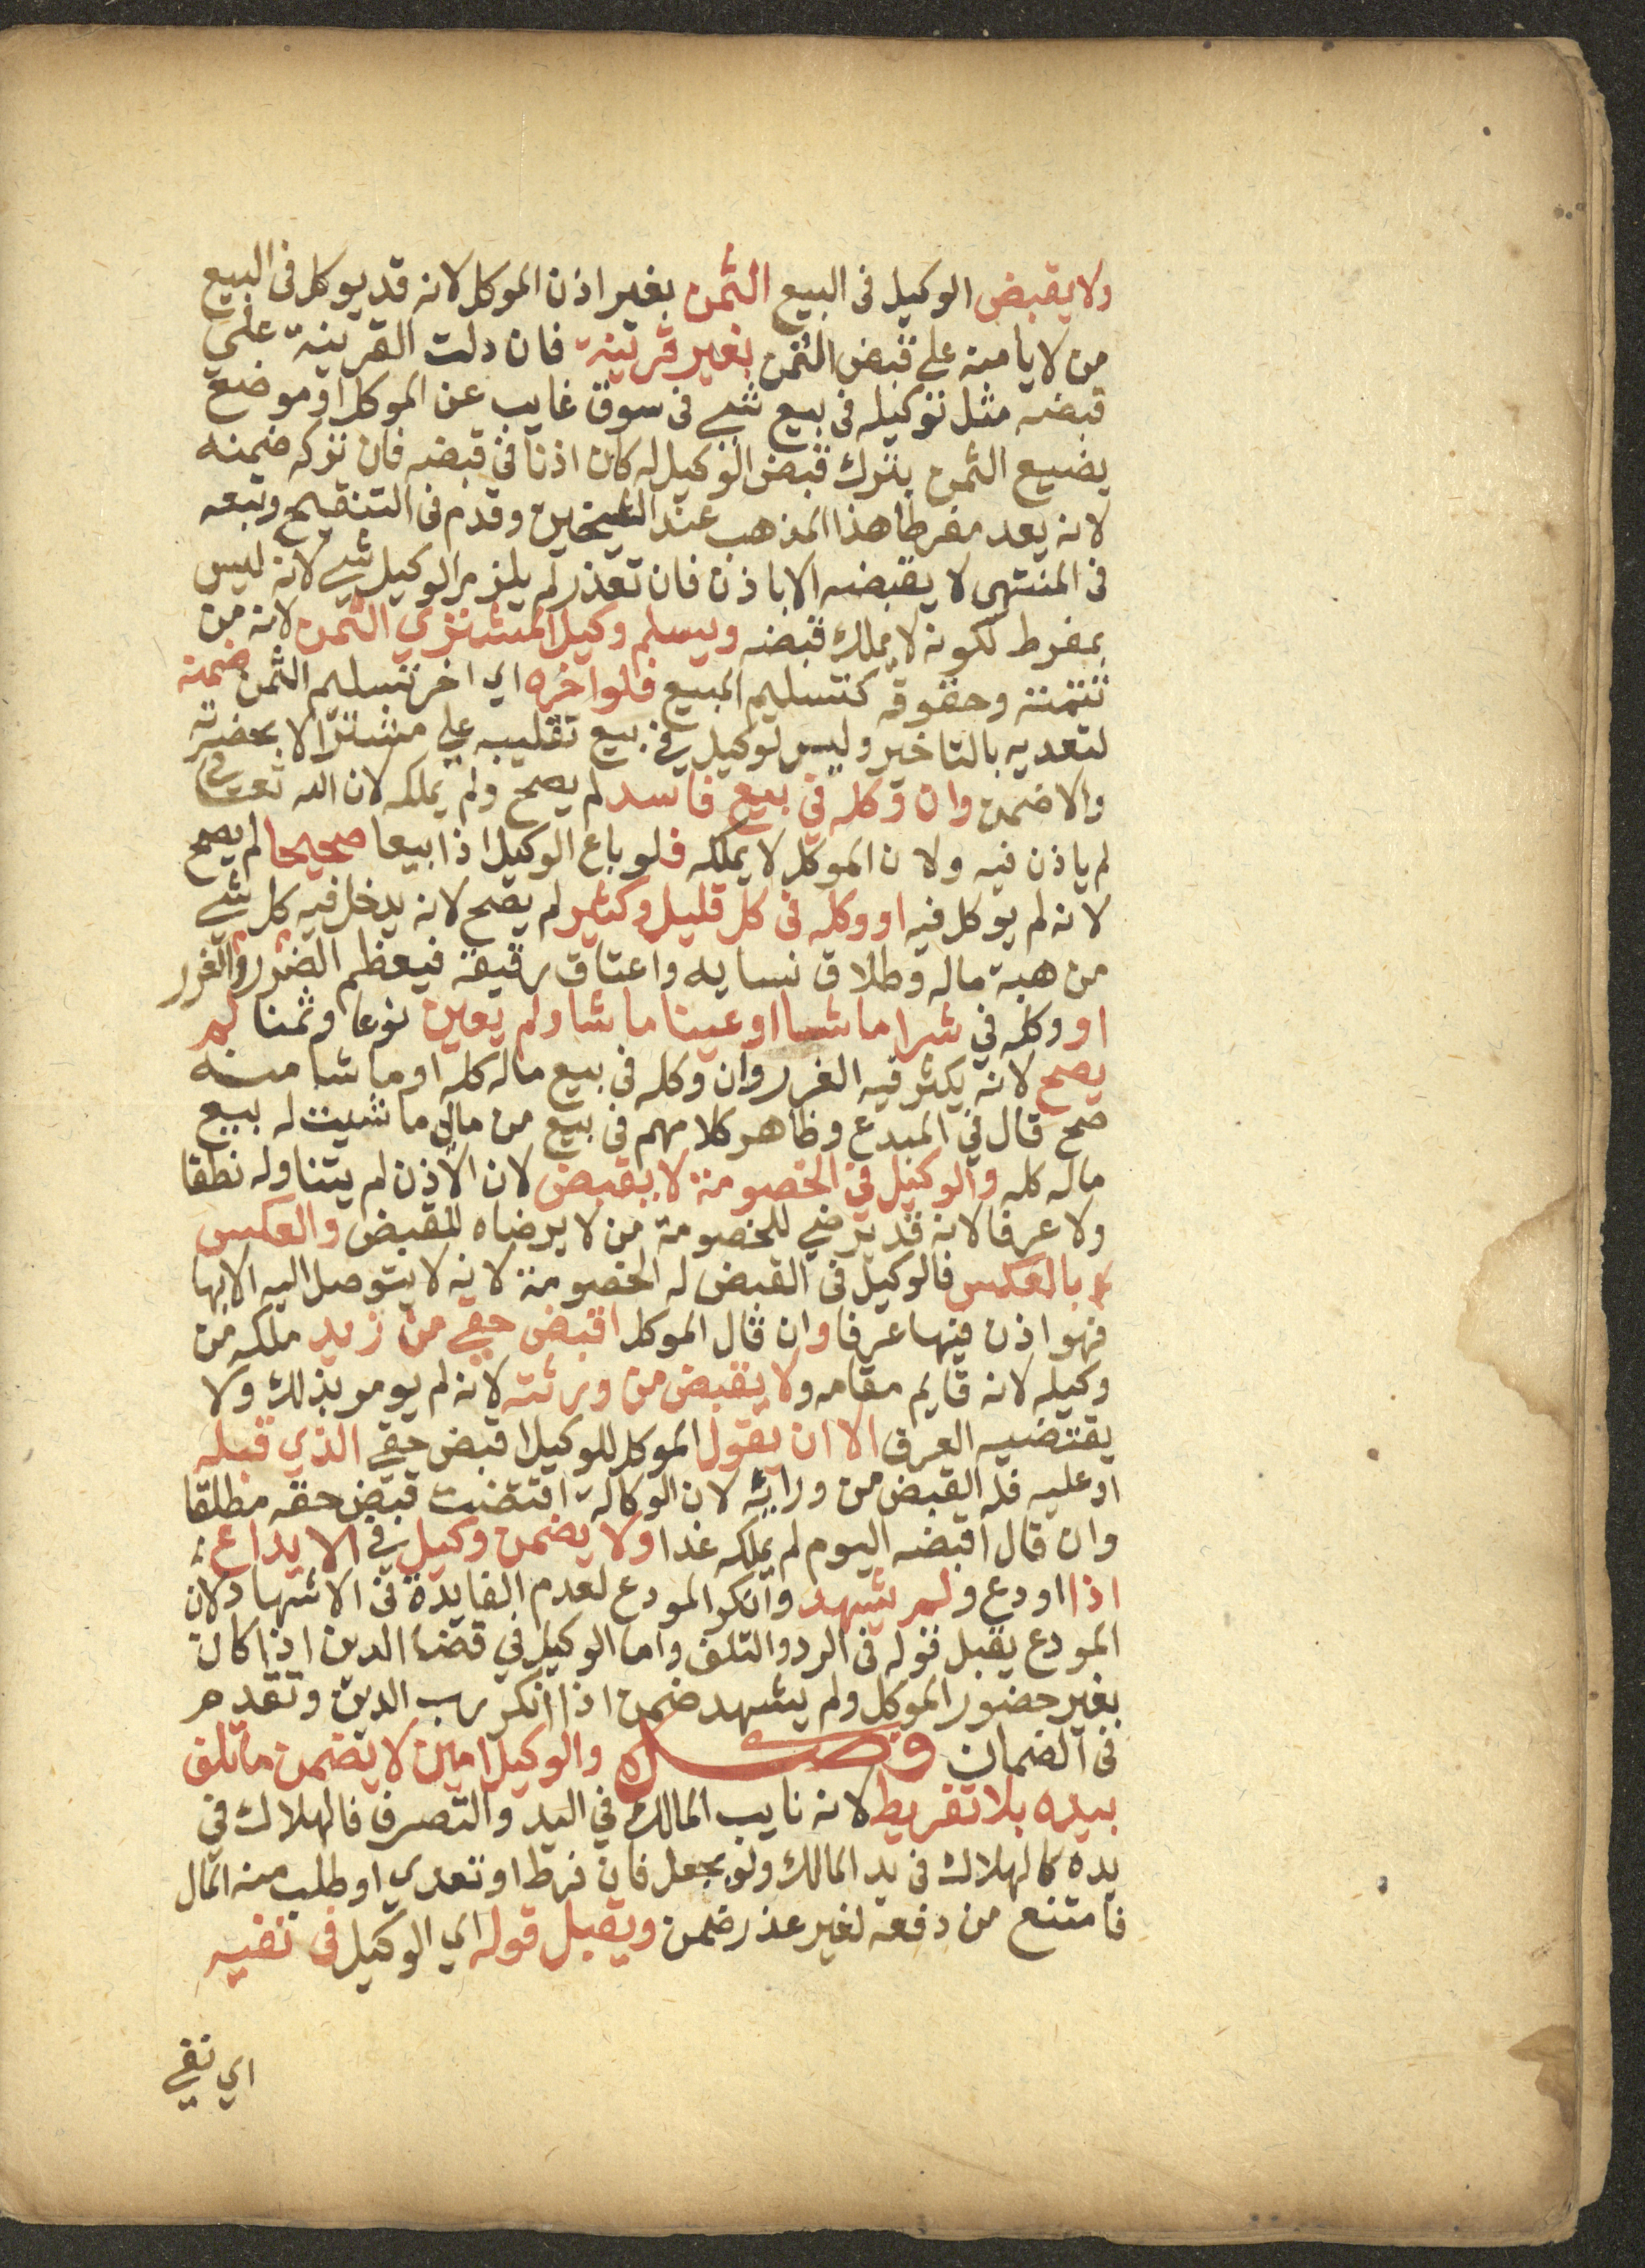 ولا يقبض الوكيل فى البيع الثمن بغير اذن الموكل لانه قد يوكل فى البيع
من لا يامنه على قبض الثمن بغير قرينة فان دلت القرينة على
قبضه مثل توكيله فى بيع شي فى سوق غايب عن الموكل او موضع
يضيع الثمن بترك قبض الوكيل له كان اذنا فى قبضه فان تركه ضمنه
لانه يعد مفرطا هذا المذهب عند الشيخين وقدم فى التنقيح وتبعه
فى المنتهى لا يقبضه الا باذن فان تعذر لم يلزم الوكيل شي لانه ليس
بمفرط لكونه لا يملك قبضه ويسلم وكيل المشتري الثمن لانه من
تتمته وحقوقه كتسليم المبيع فلو اخره اي اخر تسليم الثمن ضمنه
لتعديه بالتاخير وليس لوكيل في بيع تقليبه على مشتر الا بحضرته
والا ضمن وان وكله في بيع فاسد لم يصح ولم يملكه لان الله تعالى
لم ياذن فيه ولان الموكل لا يملكه فلو باع الوكيل اذا بيعا صحيحا لم يصح
لانه لم يوكل فيه او وكله فى كل قليل وكثير لم يصح لانه يدخل فيه كل شي
من هبة ماله وطلاق نسايه واعتاق رقيقه فيعظم الضرر والغرر
او وكله في شرا ما شا او عينا ما شا ولم يعين نوعا وثمنا لم
يصح لانه يكثر فيه الغرر وان وكله فى بيع ماله كله او ما شا منه
صح قال في المبدع وظاهر كلامهم فى بيع من مالى ما شيت له بيع
ماله كله والوكيل في الخصومة لا يقبض لان الاذن لم يتناوله نطقا
ولا عرفا لانه قد يرضي للخصومة من لا يرضاه للقبض والعكس
بالعكس فالوكيل فى القبض له الخصومة لانه لا يتوصل اليه الا بها
فهو اذن فيها عرفا وان قال الموكل اقبض حقي من زيد ملكه من
وكيله لانه قايم مقامه ولا يقبض من ورثته لانه لم يومر بذلك ولا
يقتضيه العرف الا ان يقول الموكل للوكيل اقبض حقي الذي قبله
او عليه فله القبض من وراثه لان الوكالة اقتضت قبض حقه مطلقا
وان قال اقبضه اليوم لم يملكه غدا ولا يضمن وكيل في الايداع
اذا اودع ولم يشهد وانكر المودع لعدم الفايدة فى الاشهاد لان
المودع يقبل قوله فى الرد والتلف واما الوكيل في قضا الدين اذا كان
بغير حضور الموكل ولم يشهد ضمن اذا انكر رب الدين وتقدم
فى الضمان فصل والوكيل امين لا يضمن ما تلف
بيده بلا تفريط لانه نايب المالك في اليد والتصرف فالهلاك في
يده كالهلاك فى يد المالك ولو بجعل فان فرط او تعدي او طلب منه المال
فامتنع من دفعه لغير عذر ضمن ويقبل قوله اي الوكيل فى نفيه
اي نفي